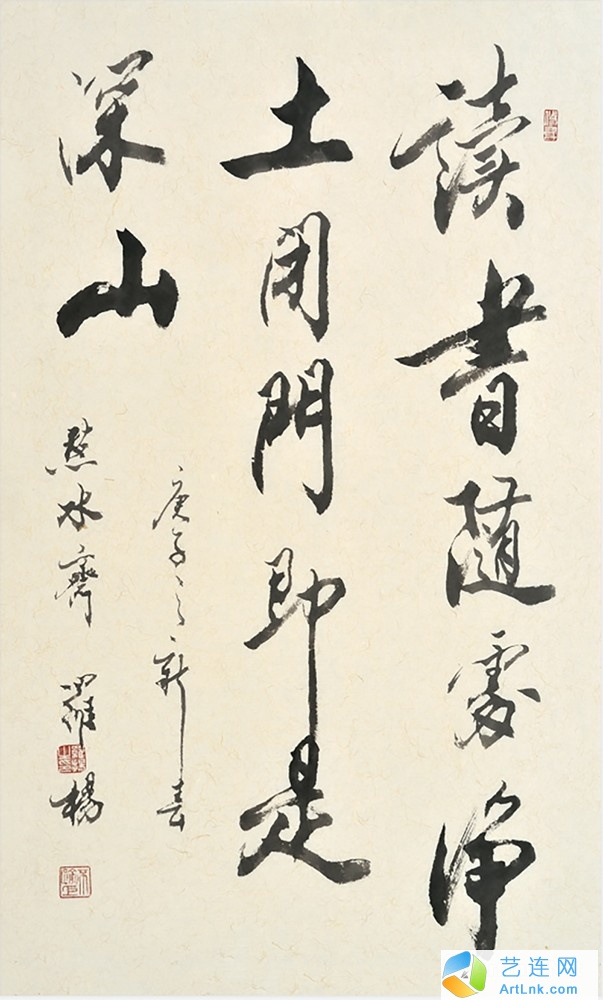 讀書隨處淨
土閉門即是
深山
庚子之新春
水齋 羅楊
艺连网
ArtLnk.com